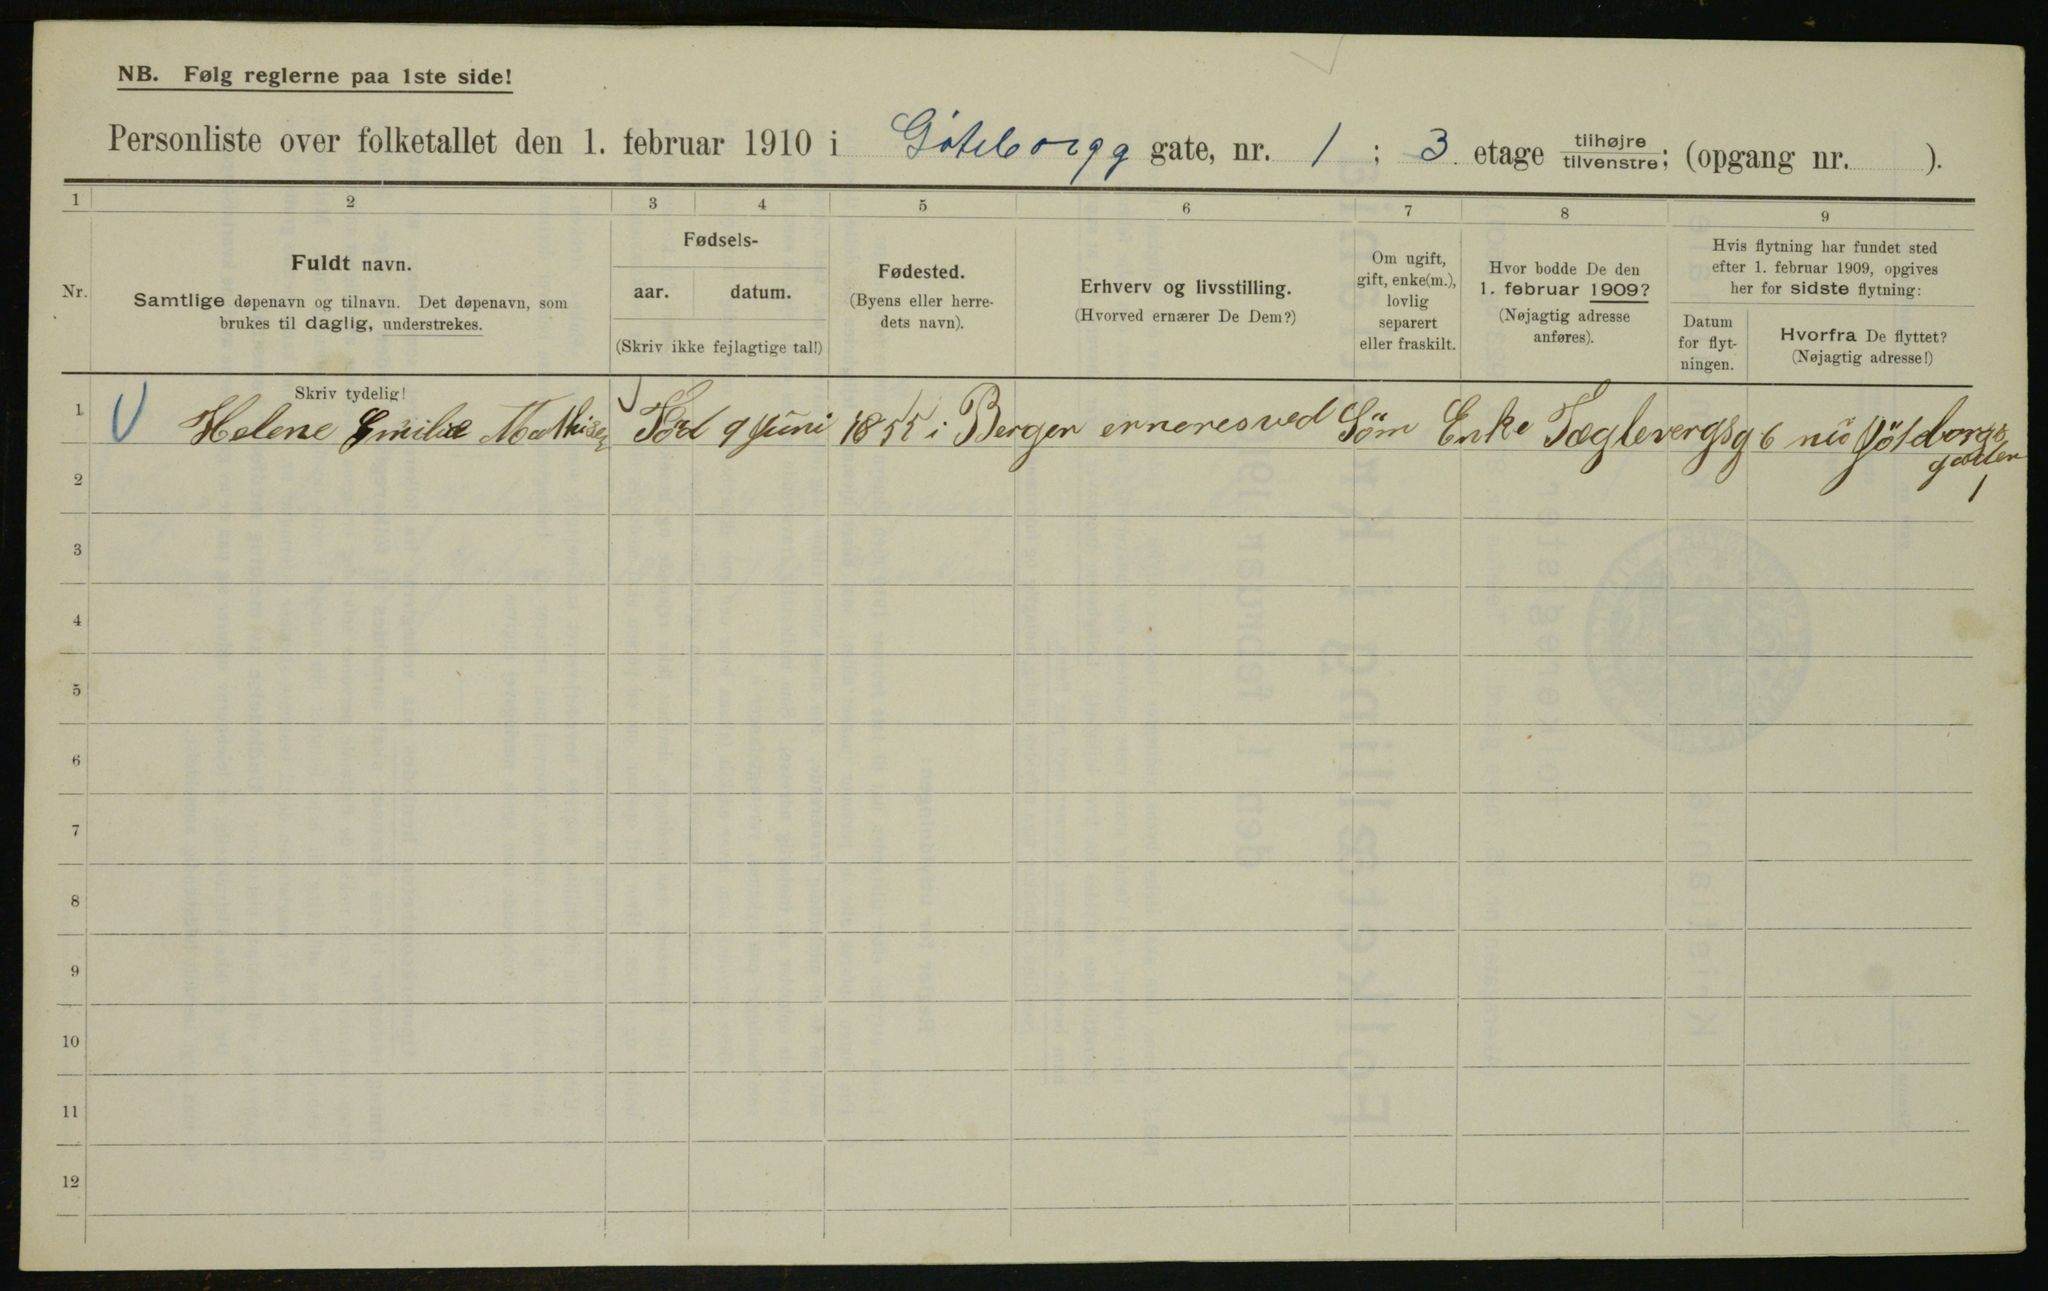 NB. Følg reglerne paa 1ste side!
Personliste over folketallet den 1. februar 1910 i Göteborgg gate, nr. 1 ; 3 etage tilhøjre tilvenstre; (opgang nr. ).
1 2 3 4 5 6 7 8 9
Nr.
Fuldt navn.
Samtlige døpenavn og tilnavn. Det døpenavn, som
brukes til daglig, understrekes.
Fødsels-
aar. datum.
(Skriv ikke fejlagtige tal!)
Fødested.
(Byens eller herre-
dets navn).
Erhverv og livsstilling.
(Hvorved ernærer De Dem?)
Om ugift,
gift, enke(m.),
lovlig
separert
eller fraskilt.
Hvor bodde De den
1. februar 1909?
(Nøjagtig adresse
anføres).
Hvis flytning har fundet sted
efter 1. februar 1909, opgives
her for sidste flytning:
Datum
for flyt-
ningen.
Hvorfra De flyttet?
(Nøjagtig adresse!)
Skriv tydelig!
1 Helene Emilie Mathisen Föd 9 Juni 1855 i Bergen erneres ved Söm Enke Tæglevergsg 6 nu Göteborgs
gaden
1
2
3
4
5
6
7
8
9
10
11
12